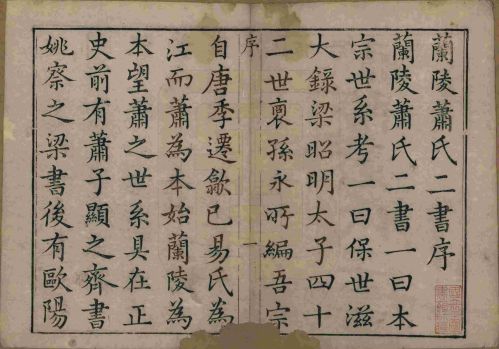 蘭陵蕭氏二書序
蘭陵蕭氏二書一曰本
宗世系考一曰保世滋
大錄梁昭明太子四十
二世裔孫永所編吾宗
序
一
自唐季遷歙已易氏為
江而蕭為本始蘭陵為
本望蕭之世系具在正
史前有蕭子顯之齊書
姚察之梁書後有歐陽